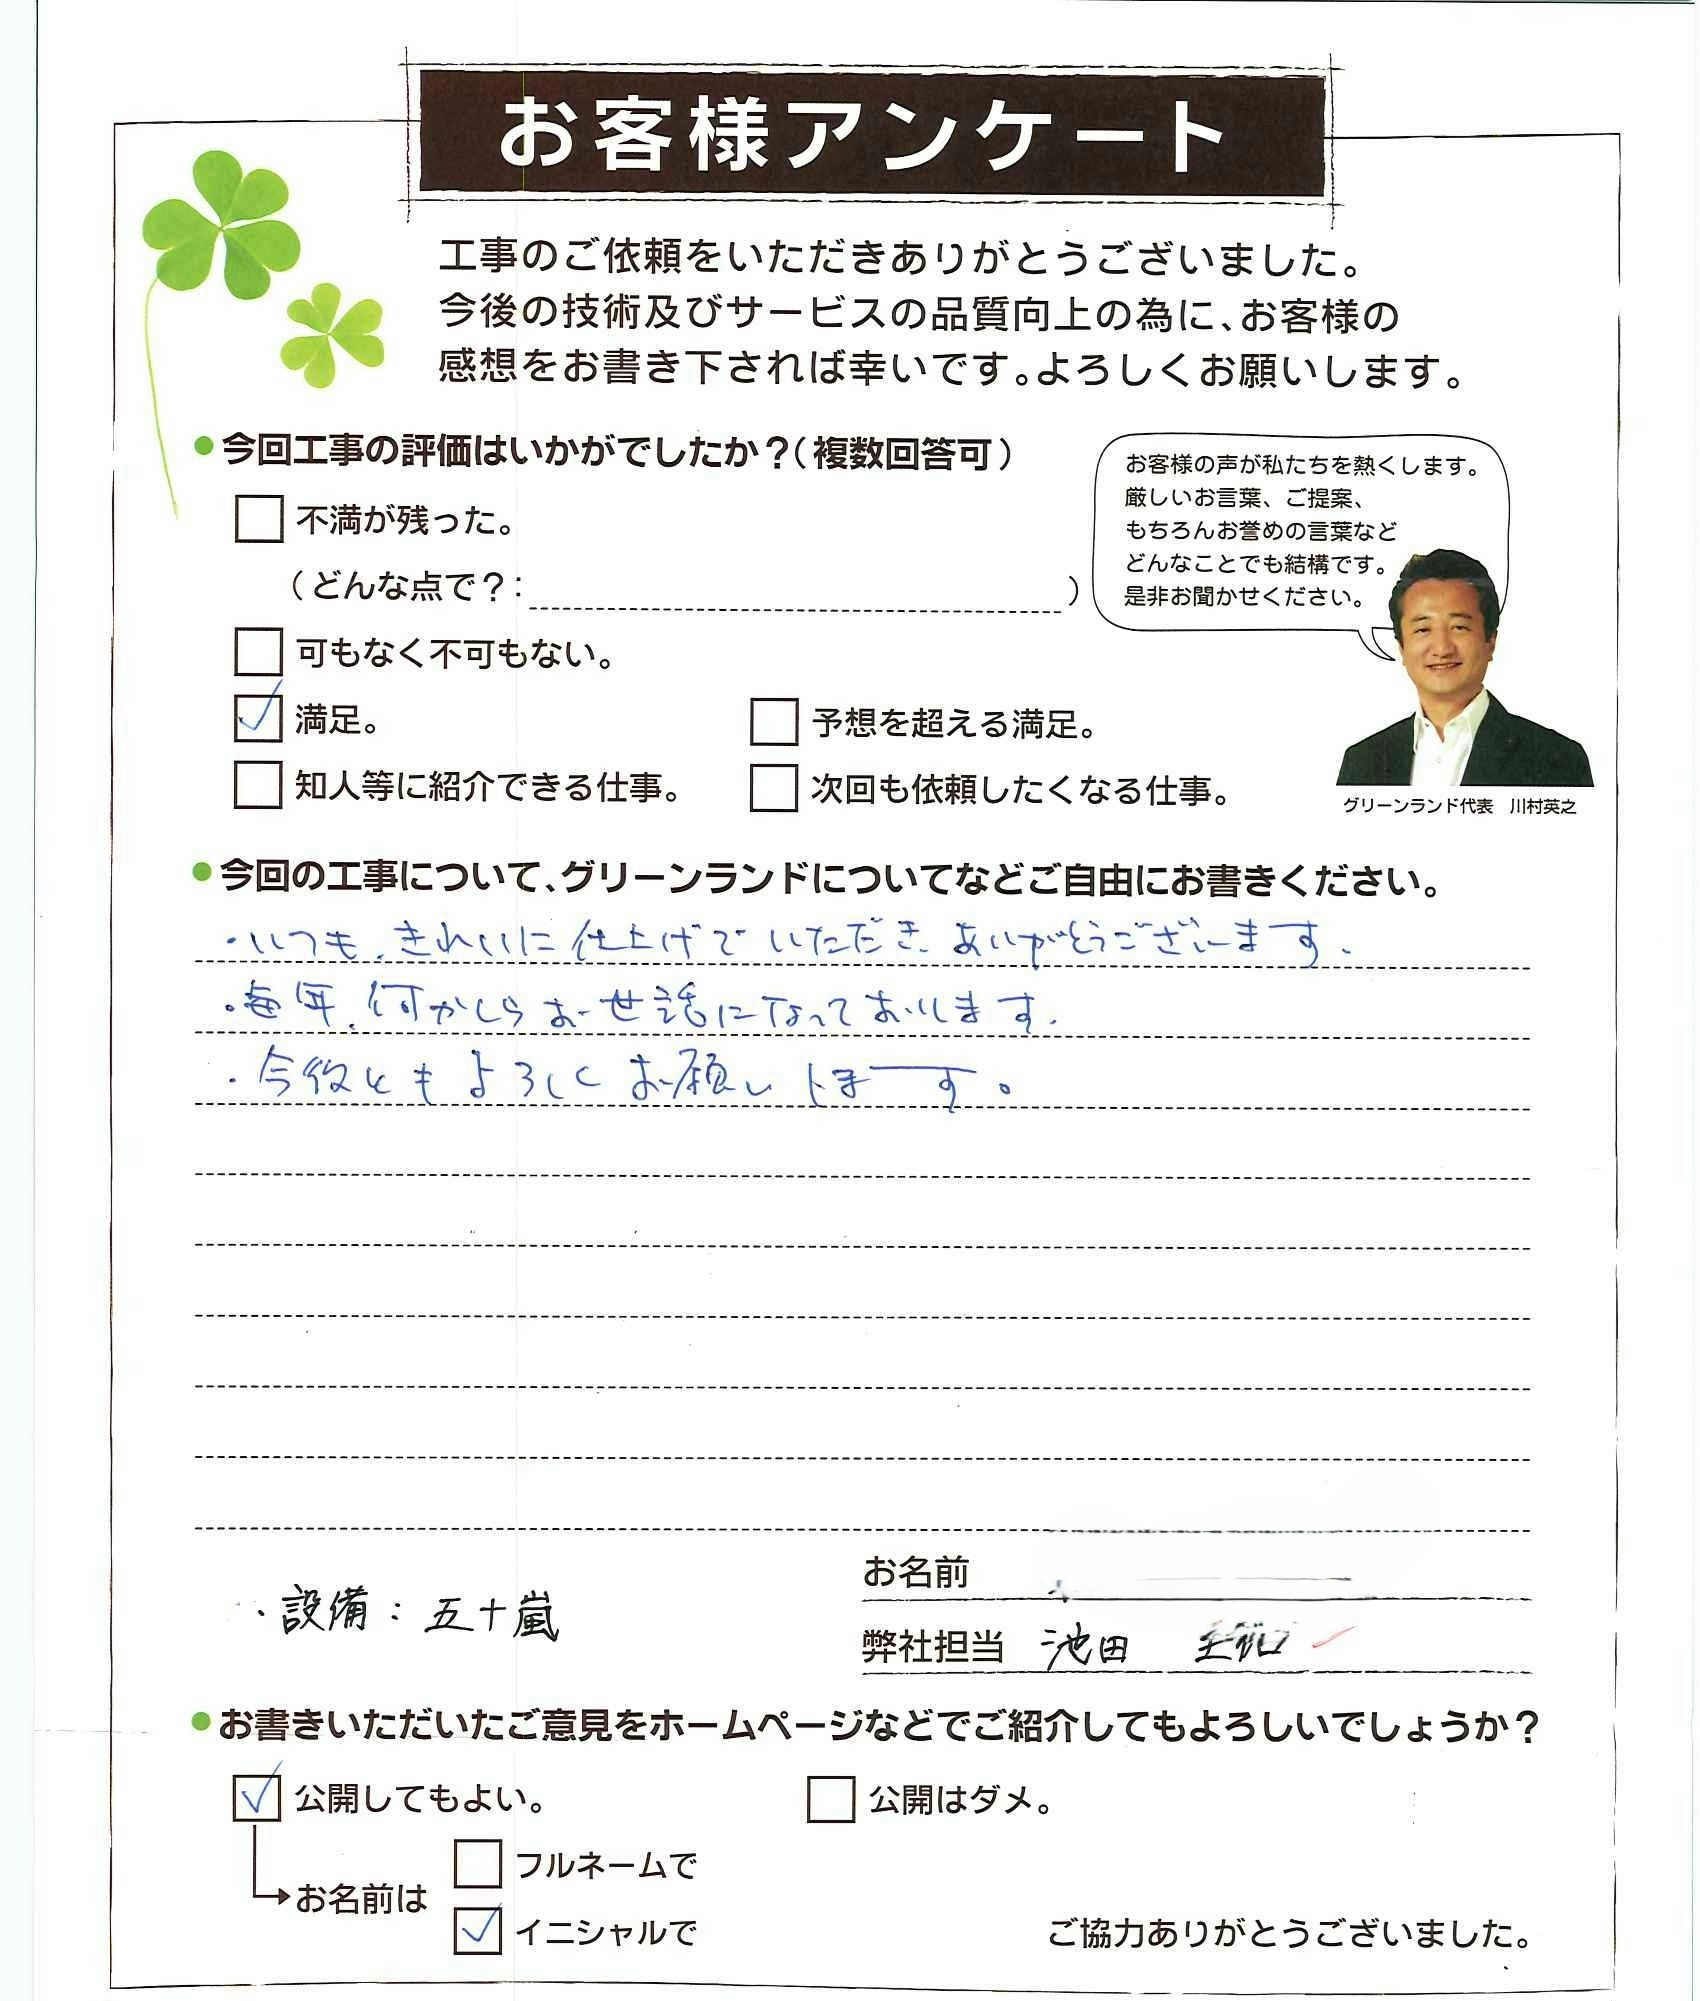 お客様アンケート
工事のご依頼をいただきありがとうございました。
今後の技術及びサービスの品質向上の為に、お客様の
感想をお書き下されば幸いです。よろしくお願いします。
●今回工事の評価はいかがでしたか？（複数回答可）
不満が残った。
（どんな点で？：　）
可もなく不可もない。
満足。
予想を超える満足。
知人等に紹介できる仕事。
次回も依頼したくなる仕事。
お客様の声が私たちを熱くします。
厳しいお言葉、ご提案、
もちろんお誉めの言葉など
どんなことでも結構です。
是非お聞かせください。
グリーンランド代表　川村英之
●今回の工事について、グリーンランドについてなどご自由にお書きください。
・いつも、きれいに仕上げていただき、ありがとうございます。
・毎年、何かしらお世話になっております。
・今後ともよろしくお願いします。
お名前
・設備：五十嵐
弊社担当　池田
●お書きいただいたご意見をホームページなどでご紹介してもよろしいでしょうか？
公開してもよい。
公開はダメ。
お名前は
フルネームで
イニシャルで
ご協力ありがとうございました。